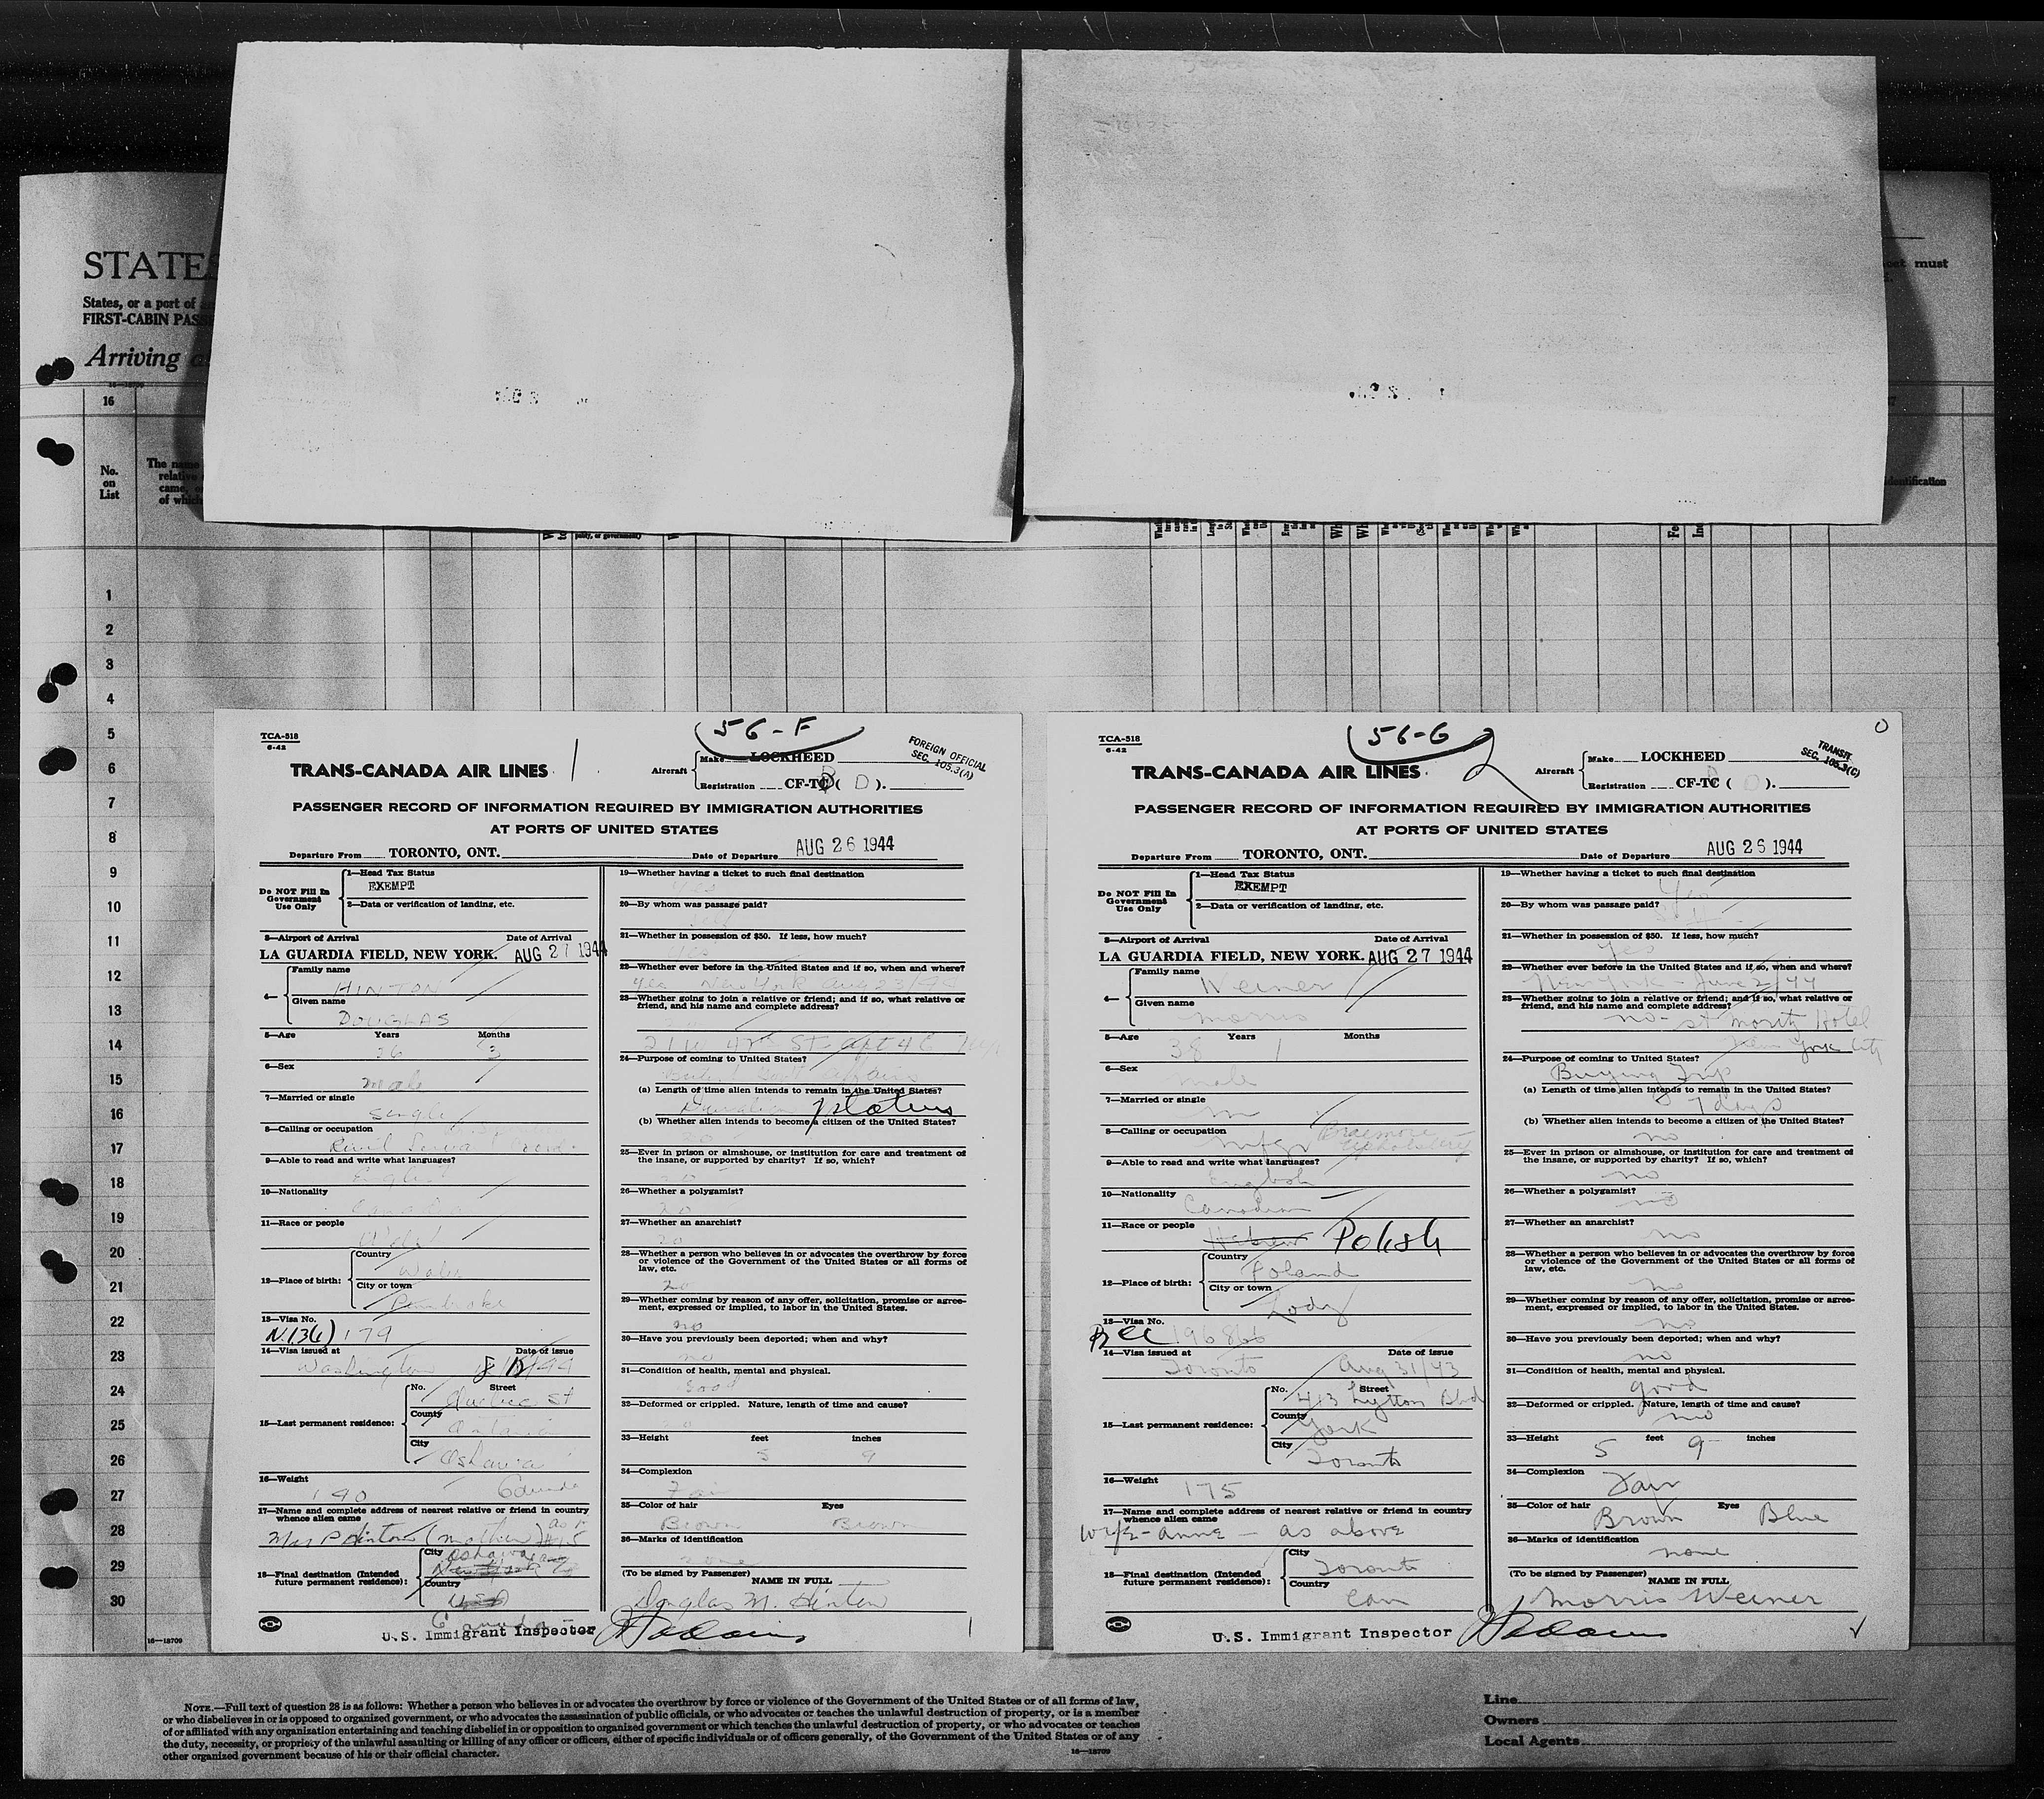 STATES
States, or a port of
FIRST-CABIN PASS
Arriving
ost must
16—18709
16
No.
on
List
The name
relative
came, or
of which
identification
pality, or government)
1
2
3
4
5
6
7
8
9
10
11
12
13
14
15
16
17
18
19
20
21
22
23
24
25
26
27
28
29
30
16—18709
TCA-518
6-42
56-F
1
TRANS-CANADA AIR LINES
Aircraft
Make LOCKHEED
Registration CF-TC ( D ).
FOREIGN OFFICIAL
SEC. 105.3(A)
PASSENGER RECORD OF INFORMATION REQUIRED BY IMMIGRATION AUTHORITIES
AT PORTS OF UNITED STATES
Departure From TORONTO, ONT. Date of Departure AUG 26 1944
Do NOT Fill In
Government
Use Only
1—Head Tax Status
EXEMPT
2—Data or verification of landing, etc.
3—Airport of Arrival Date of Arrival
LA GUARDIA FIELD, NEW YORK. AUG 27 1944
4— Family name
HINTON
Given name
DOUGLAS
5—Age Years Months
26 3
6—Sex
Male
7—Married or single
Single
8—Calling or occupation
Civil
9—Able to read and write what languages?
English
10—Nationality
Canadian
11—Race or people
Welsh
12—Place of birth:
Country
Wales
City or town
Pembroke
13—Visa No.
179
14—Visa issued at Date of issue
Washington
15—Last permanent residence:
No. Street
Quebec St
County
Ontario
City
Oshawa
16—Weight
190 Canada
17—Name and complete address of nearest relative or friend in country
whence alien came
Mrs P Hinton (mother) as in #15
18—Final destination (Intended
future permanent residence):
City
Oshawa
New York
Country
USA
Canada
19—Whether having a ticket to such final destination
Yes
20—By whom was passage paid?
21—Whether in possession of $50. If less, how much?
Yes
22—Whether ever before in the United States and if so, when and where?
Yes New York Aug 23/44
23—Whether going to join a relative or friend; and if so, what relative or
friend, and his name and complete address?
St. Apt 4C
24—Purpose of coming to United States?
(a) Length of time alien intends to remain in the United States?
Duration status
(b) Whether alien intends to become a citizen of the United States?
no
25—Ever in prison or almshouse, or institution for care and treatment of
the insane, or supported by charity? If so, which?
no
26—Whether a polygamist?
no
27—Whether an anarchist?
no
28—Whether a person who believes in or advocates the overthrow by force
or violence of the Government of the United States or all forms of
law, etc.
no
29—Whether coming by reason of any offer, solicitation, promise or agree-
ment, expressed or implied, to labor in the United States.
no
30—Have you previously been deported; when and why?
no
31—Condition of health, mental and physical.
Good
32—Deformed or crippled. Nature, length of time and cause?
no
33—Height feet inches
5 9
34—Complexion
Fair
35—Color of hair Eyes
Brown Brown
36—Marks of identification
none
(To be signed by Passenger) NAME IN FULL
Douglas M. Hinton
U.S. Immigrant Inspector
1
TCA-518
6-42
56-G
2
0
TRANS-CANADA AIR LINES
Aircraft
Make LOCKHEED
Registration CF-TC ( ).
TRANSIT
SEC. 105.3(C)
PASSENGER RECORD OF INFORMATION REQUIRED BY IMMIGRATION AUTHORITIES
AT PORTS OF UNITED STATES
Departure From TORONTO, ONT. Date of Departure AUG 26 1944
Do NOT Fill In
Government
Use Only
1—Head Tax Status
EXEMPT
2—Data or verification of landing, etc.
3—Airport of Arrival Date of Arrival
LA GUARDIA FIELD, NEW YORK. AUG 27 1944
4— Family name
Weiner
Given name
Morris
5—Age Years Months
38 1
6—Sex
male
7—Married or single
m
8—Calling or occupation
mfgr Braemore
Upholstery
9—Able to read and write what languages?
English
10—Nationality
Canadian
11—Race or people
Hebrew Polish
12—Place of birth:
Country
Poland
City or town
Lodz
13—Visa No.
BCC 196866
14—Visa issued at Date of issue
Toronto Aug 31/43
15—Last permanent residence:
No. Street
413 Lytton Blvd
County
York
City
Toronto
16—Weight
175
17—Name and complete address of nearest relative or friend in country
whence alien came
wife - anne — as above
18—Final destination (Intended
future permanent residence):
City
Toronto
Country
Can
19—Whether having a ticket to such final destination
Yes
20—By whom was passage paid?
Self
21—Whether in possession of $50. If less, how much?
Yes
22—Whether ever before in the United States and if so, when and where?
New York June 2/44
23—Whether going to join a relative or friend; and if so, what relative or
friend, and his name and complete address?
no - St Moritz Hotel
New York City
24—Purpose of coming to United States?
Buying Trip
(a) Length of time alien intends to remain in the United States?
7 days
(b) Whether alien intends to become a citizen of the United States?
no
25—Ever in prison or almshouse, or institution for care and treatment of
the insane, or supported by charity? If so, which?
no
26—Whether a polygamist?
no
27—Whether an anarchist?
no
28—Whether a person who believes in or advocates the overthrow by force
or violence of the Government of the United States or all forms of
law, etc.
no
29—Whether coming by reason of any offer, solicitation, promise or agree-
ment, expressed or implied, to labor in the United States.
no
30—Have you previously been deported; when and why?
no
31—Condition of health, mental and physical.
good
32—Deformed or crippled. Nature, length of time and cause?
no
33—Height feet inches
5 9
34—Complexion
Fair
35—Color of hair Eyes
Brown Blue
36—Marks of identification
none
(To be signed by Passenger) NAME IN FULL
Morris Weiner
U.S. Immigrant Inspector
NOTE.—Full text of question 28 is as follows: Whether a person who believes in or advocates the overthrow by force or violence of the Government of the United States or of all forms of law,
or who disbelieves in or is opposed to organized government, or who advocates the assassination of public officials, or who advocates or teaches the unlawful destruction of property, or is a member
of or affiliated with any organization entertaining and teaching disbelief in or opposition to organized government or which teaches the unlawful destruction of property, or who advocates or teaches
the duty, necessity, or propriety of the unlawful assaulting or killing of any officer or officers, either of specific individuals or of officers generally, of the Government of the United States or of any
other organized government because of his or their official character.
16—18709
Line
Owners
Local Agents